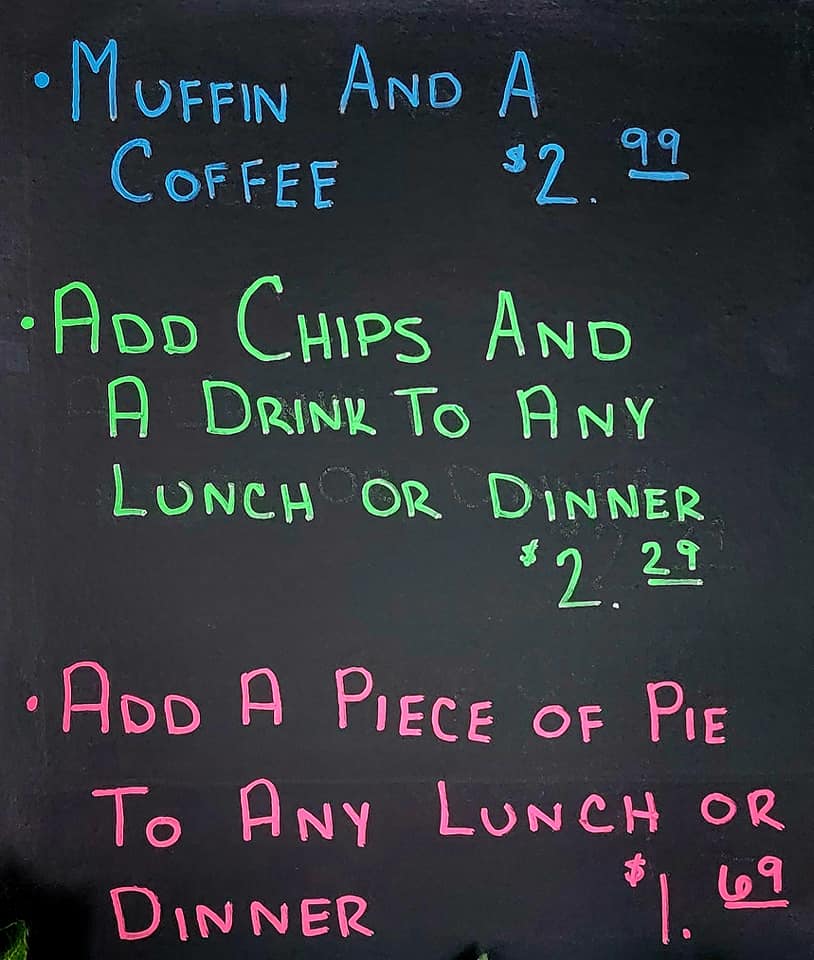 • MUFFIN AND A
COFFEE $2.99
• ADD CHIPS AND
A DRINK TO ANY
LUNCH OR DINNER
$2.29
• ADD A PIECE OF PIE
TO ANY LUNCH OR
DINNER $1.69